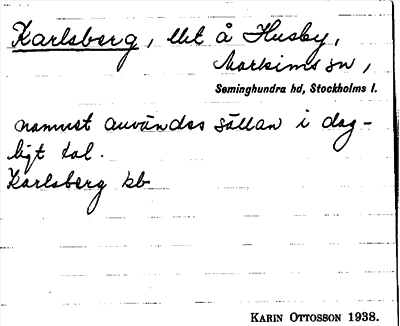 Karlsberg, lht å Husby,
Markims sn,
Seminghundra hd, Stockholms l.
namnet användes sällan i dag-
ligt tal.
Karlsberg kb
KARIN OTTOSSON 1938.